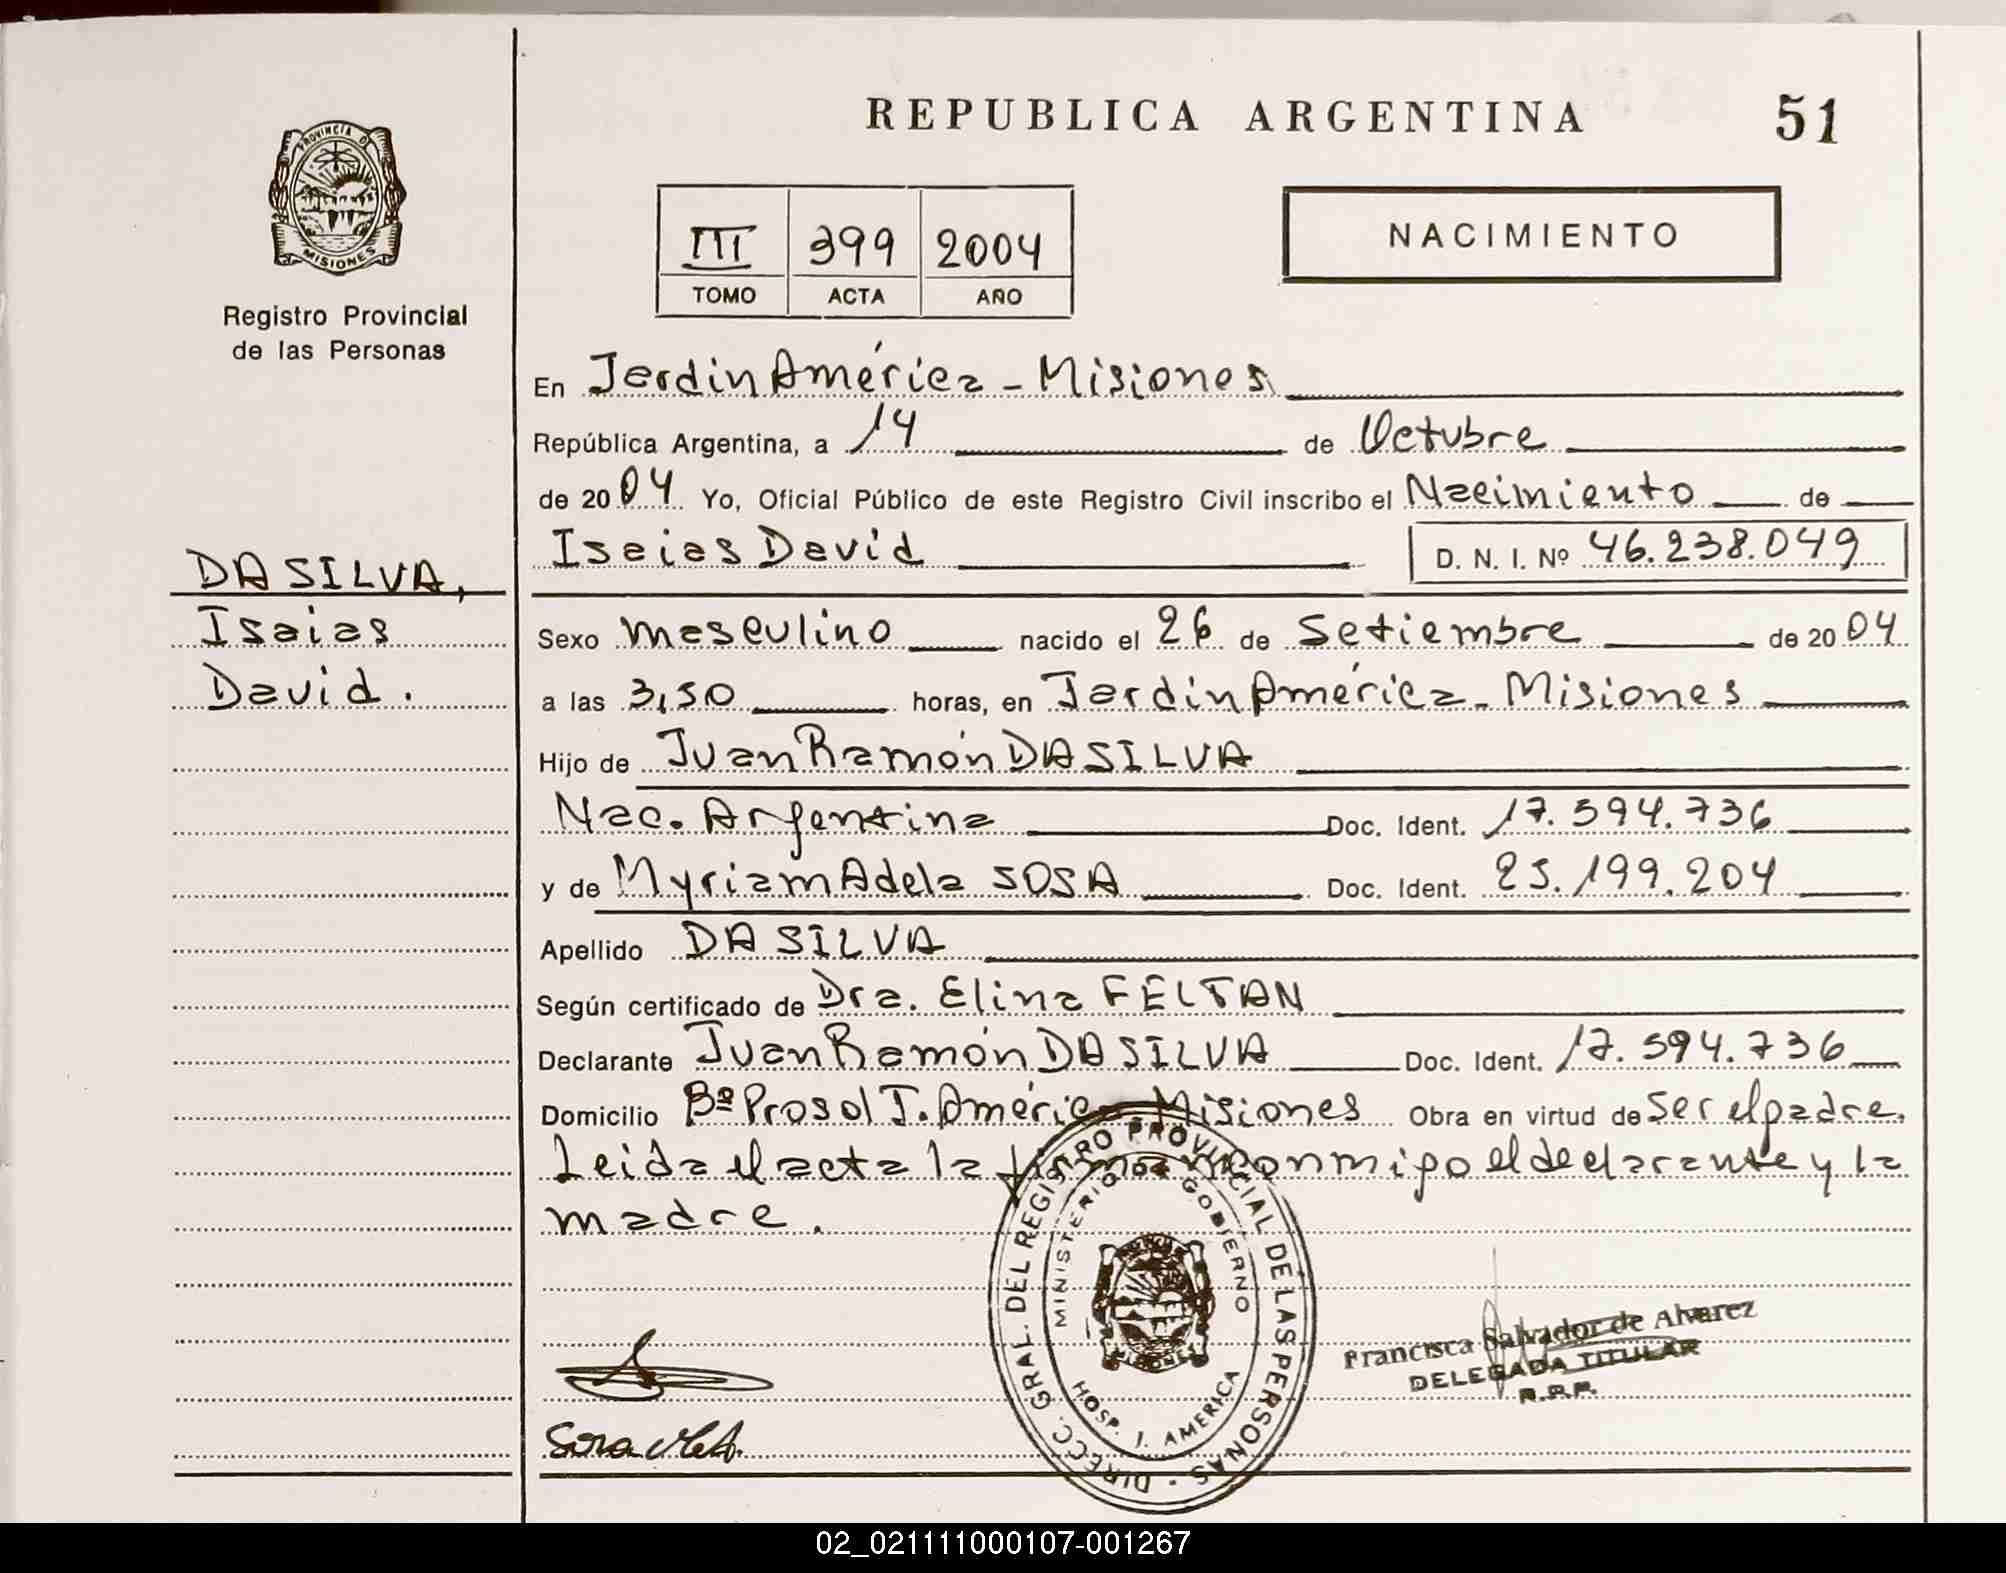 REPUBLICA ARGENTINA
51
PROVINCIA D
MISIONES
Registro Provincial
de las Personas
III 399 2004
TOMO ACTA AÑO
NACIMIENTO
En Jardín América - Misiones
República Argentina, a 14 de Octubre
de 2004 Yo, Oficial Público de este Registro Civil inscribo el Nacimiento de
Isaias David D. N. I. Nº 46.238.049
DA SILVA,
Isaias
David.
Sexo masculino nacido el 26 de Setiembre de 2004
a las 3,50 horas, en Jardín América - Misiones
Hijo de Juan Ramón DA SILVA
Nac. Argentina Doc. Ident. 17.594.736
y de Myriam Adela SOSA Doc. Ident. 25.199.204
Apellido DA SILVA
Según certificado de Dra. Elina FELTAN
Declarante Juan Ramón DA SILVA Doc. Ident. 17.594.736
Domicilio Bº Prosol J. América Misiones Obra en virtud de ser el padre.
Leida el acta la firman conmigo el declarante y la
madre.
DIRECC. GRAL. DEL REGISTRO PROVINCIAL DE LAS PERSONAS -
MINISTERIO DE GOBIERNO
HOSP. J. AMERICA
Francisca Salvador de Alvarez
DELEGADA TITULAR
R.P.P.
Sosa
02_021111000107-001267